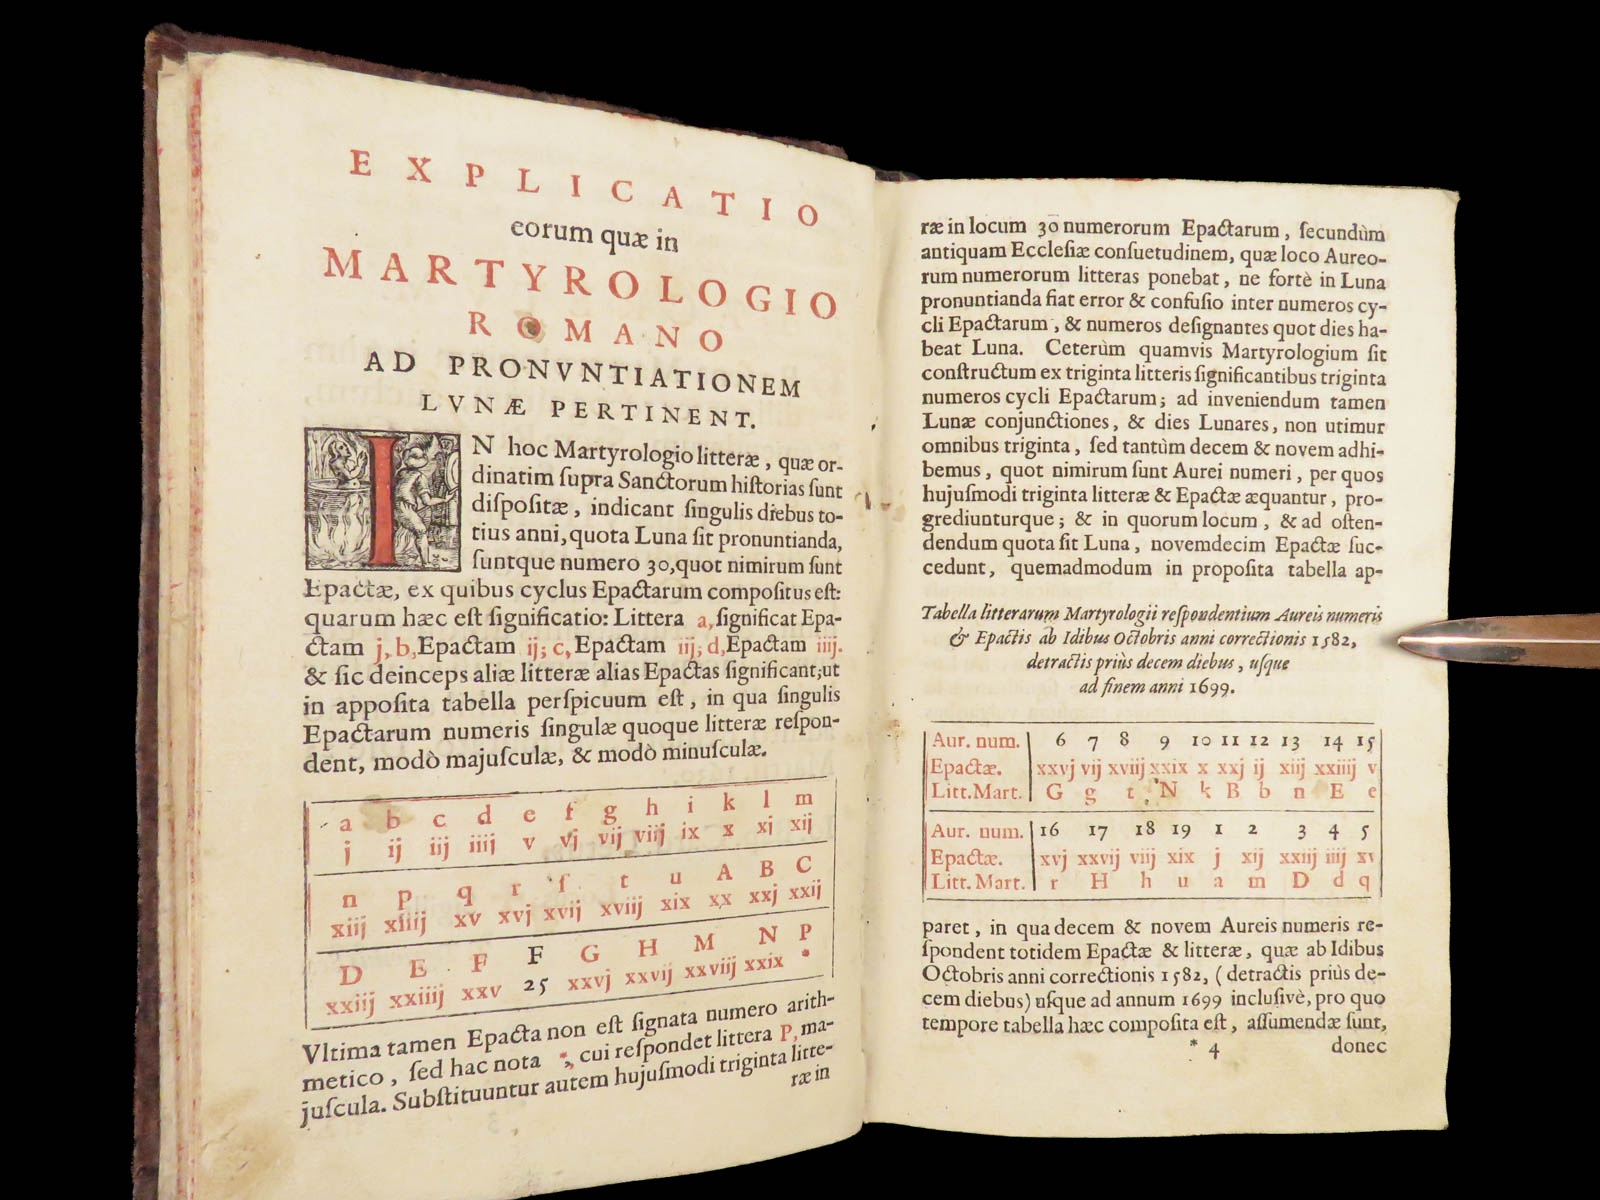 EXPLICATIO
eorum quæ in
MARTYROLOGIO
ROMANO
AD PRONVNTIATIONEM
LVNÆ PERTINENT.
IN hoc Martyrologio litteræ, quæ or-
dinatim ſupra Sanctorum hiſtorias ſunt
diſpoſitæ, indicant ſingulis diebus to-
tius anni, quota Luna ſit pronuntianda,
ſuntque numero 30, quot nimirum ſunt
Epactæ, ex quibus cyclus Epactarum compoſitus eſt:
quarum hæc eſt ſignificatio: Littera a, ſignificat Epa-
ctam j, b, Epactam ij; c, Epactam iij; d, Epactam iiij.
& ſic deinceps aliæ litteræ alias Epactas ſignificant; ut
in appoſita tabella perſpicuum eſt, in qua ſingulis
Epactarum numeris ſingulæ quoque litteræ reſpon-
dent, modò majuſculæ, & modò minuſculæ.
a b c d e f g h i k l m
j ij iij iiij v vj vij viij ix x xj xij
n p q r ſ t u A B C
xiij xiiij xv xvj xvij xviij xix xx xxj xxij
D E F F G H M N P
xxiij xxiiij xxv 25 xxvj xxvij xxviij xxix *
Vltima tamen Epacta non eſt ſignata numero arith-
metico, ſed hac nota *, cui reſpondet littera P, ma-
juſcula. Subſtituuntur autem hujuſmodi triginta litte-
ræ in
ræ in locum 30 numerorum Epactarum, ſecundùm
antiquam Eccleſiæ conſuetudinem, quæ loco Aureo-
rum numerorum litteras ponebat, ne fortè in Luna
pronuntianda fiat error & confuſio inter numeros cy-
cli Epactarum, & numeros deſignantes quot dies ha-
beat Luna. Ceterùm quamvis Martyrologium ſit
conſtructum ex triginta litteris ſignificantibus triginta
numeros cycli Epactarum; ad inveniendum tamen
Lunæ conjunctiones, & dies Lunares, non utimur
omnibus triginta, ſed tantùm decem & novem adhi-
bemus, quot nimirum ſunt Aurei numeri, per quos
hujuſmodi triginta litteræ & Epactæ æquantur, pro-
grediunturque; & in quorum locum, & ad oſten-
dendum quota ſit Luna, novemdecim Epactæ ſuc-
cedunt, quemadmodum in propoſita tabella ap-
Tabella litterarum Martyrologii reſpondentium Aureis numeris
& Epactis ab Idibus Octobris anni correctionis 1582,
detractis priùs decem diebus, uſque
ad finem anni 1699.
Aur. num. 6 7 8 9 10 11 12 13 14 15
Epactæ. xxvj vij xviij xxix x xxj ij xiij xxiiij v
Litt. Mart. G g t N k B b n E e
Aur. num. 16 17 18 19 1 2 3 4 5
Epactæ. xvj xxvij viij xix j xij xxiij iiij xv
Litt. Mart. r H h u a m D d q
paret, in qua decem & novem Aureis numeris re-
ſpondent totidem Epactæ & litteræ, quæ ab Idibus
Octobris anni correctionis 1582, (detractis priùs de-
cem diebus) uſque ad annum 1699 incluſivè, pro quo
tempore tabella hæc compoſita eſt, aſſumendæ ſunt,
* 4
donec